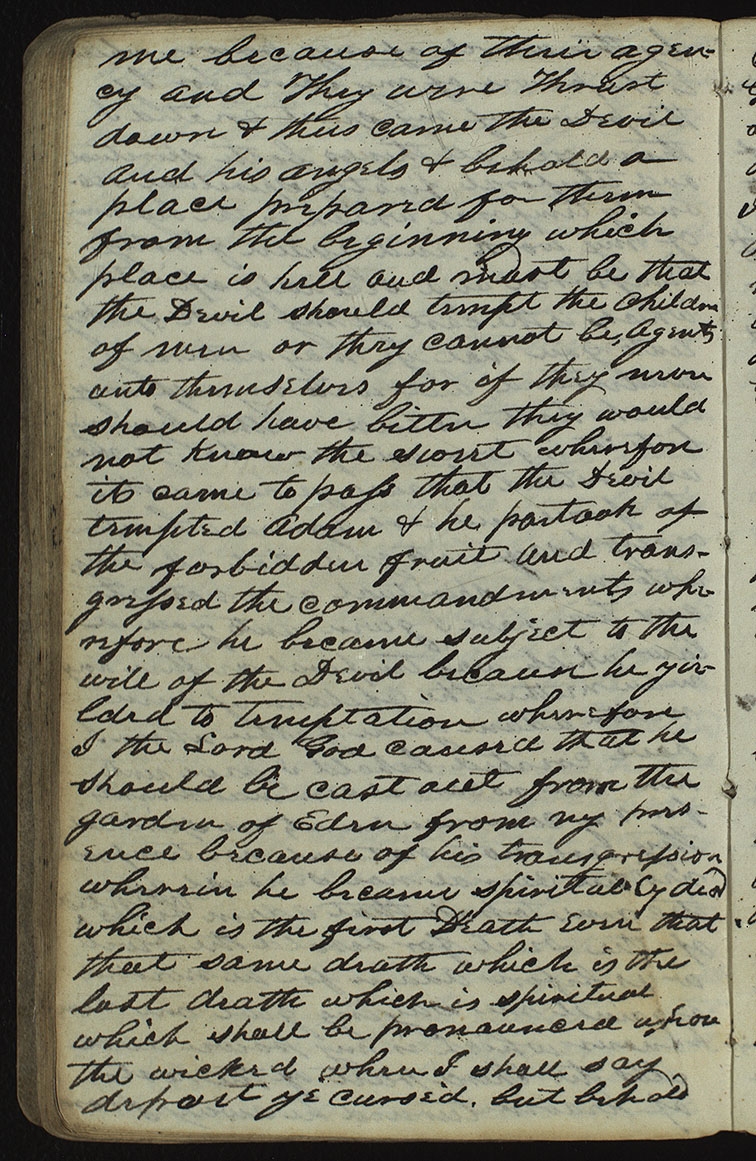 me because of their agen-
cy and They were Thrust
down & thus came the Devil
and his angels & behold a
place prepared for them
from the beginning which
place is hell and must be that
the Devil should tempt the Children
of men or they cannot be, Agents
unto themselvs for if they never
should have bitter they would
not know the sweet wherefore
it came to pass that the Devil
tempted Adam & he partook of
the forbidden fruit and trans-
gressed the commandments whe-
refore he became subject to the
will of the Devil because he yie-
lded to temptation wherefore
I the Lord God caused that he
should be cast out from the
garden of Eden from my pres-
ence because of his transgression
wherein he became spiritually dead
which is the first Death even that
that same death which is the
last death which is spiritual
which shall be pronounced upon
the wicked when I shall say
depart ye cursed. but behold